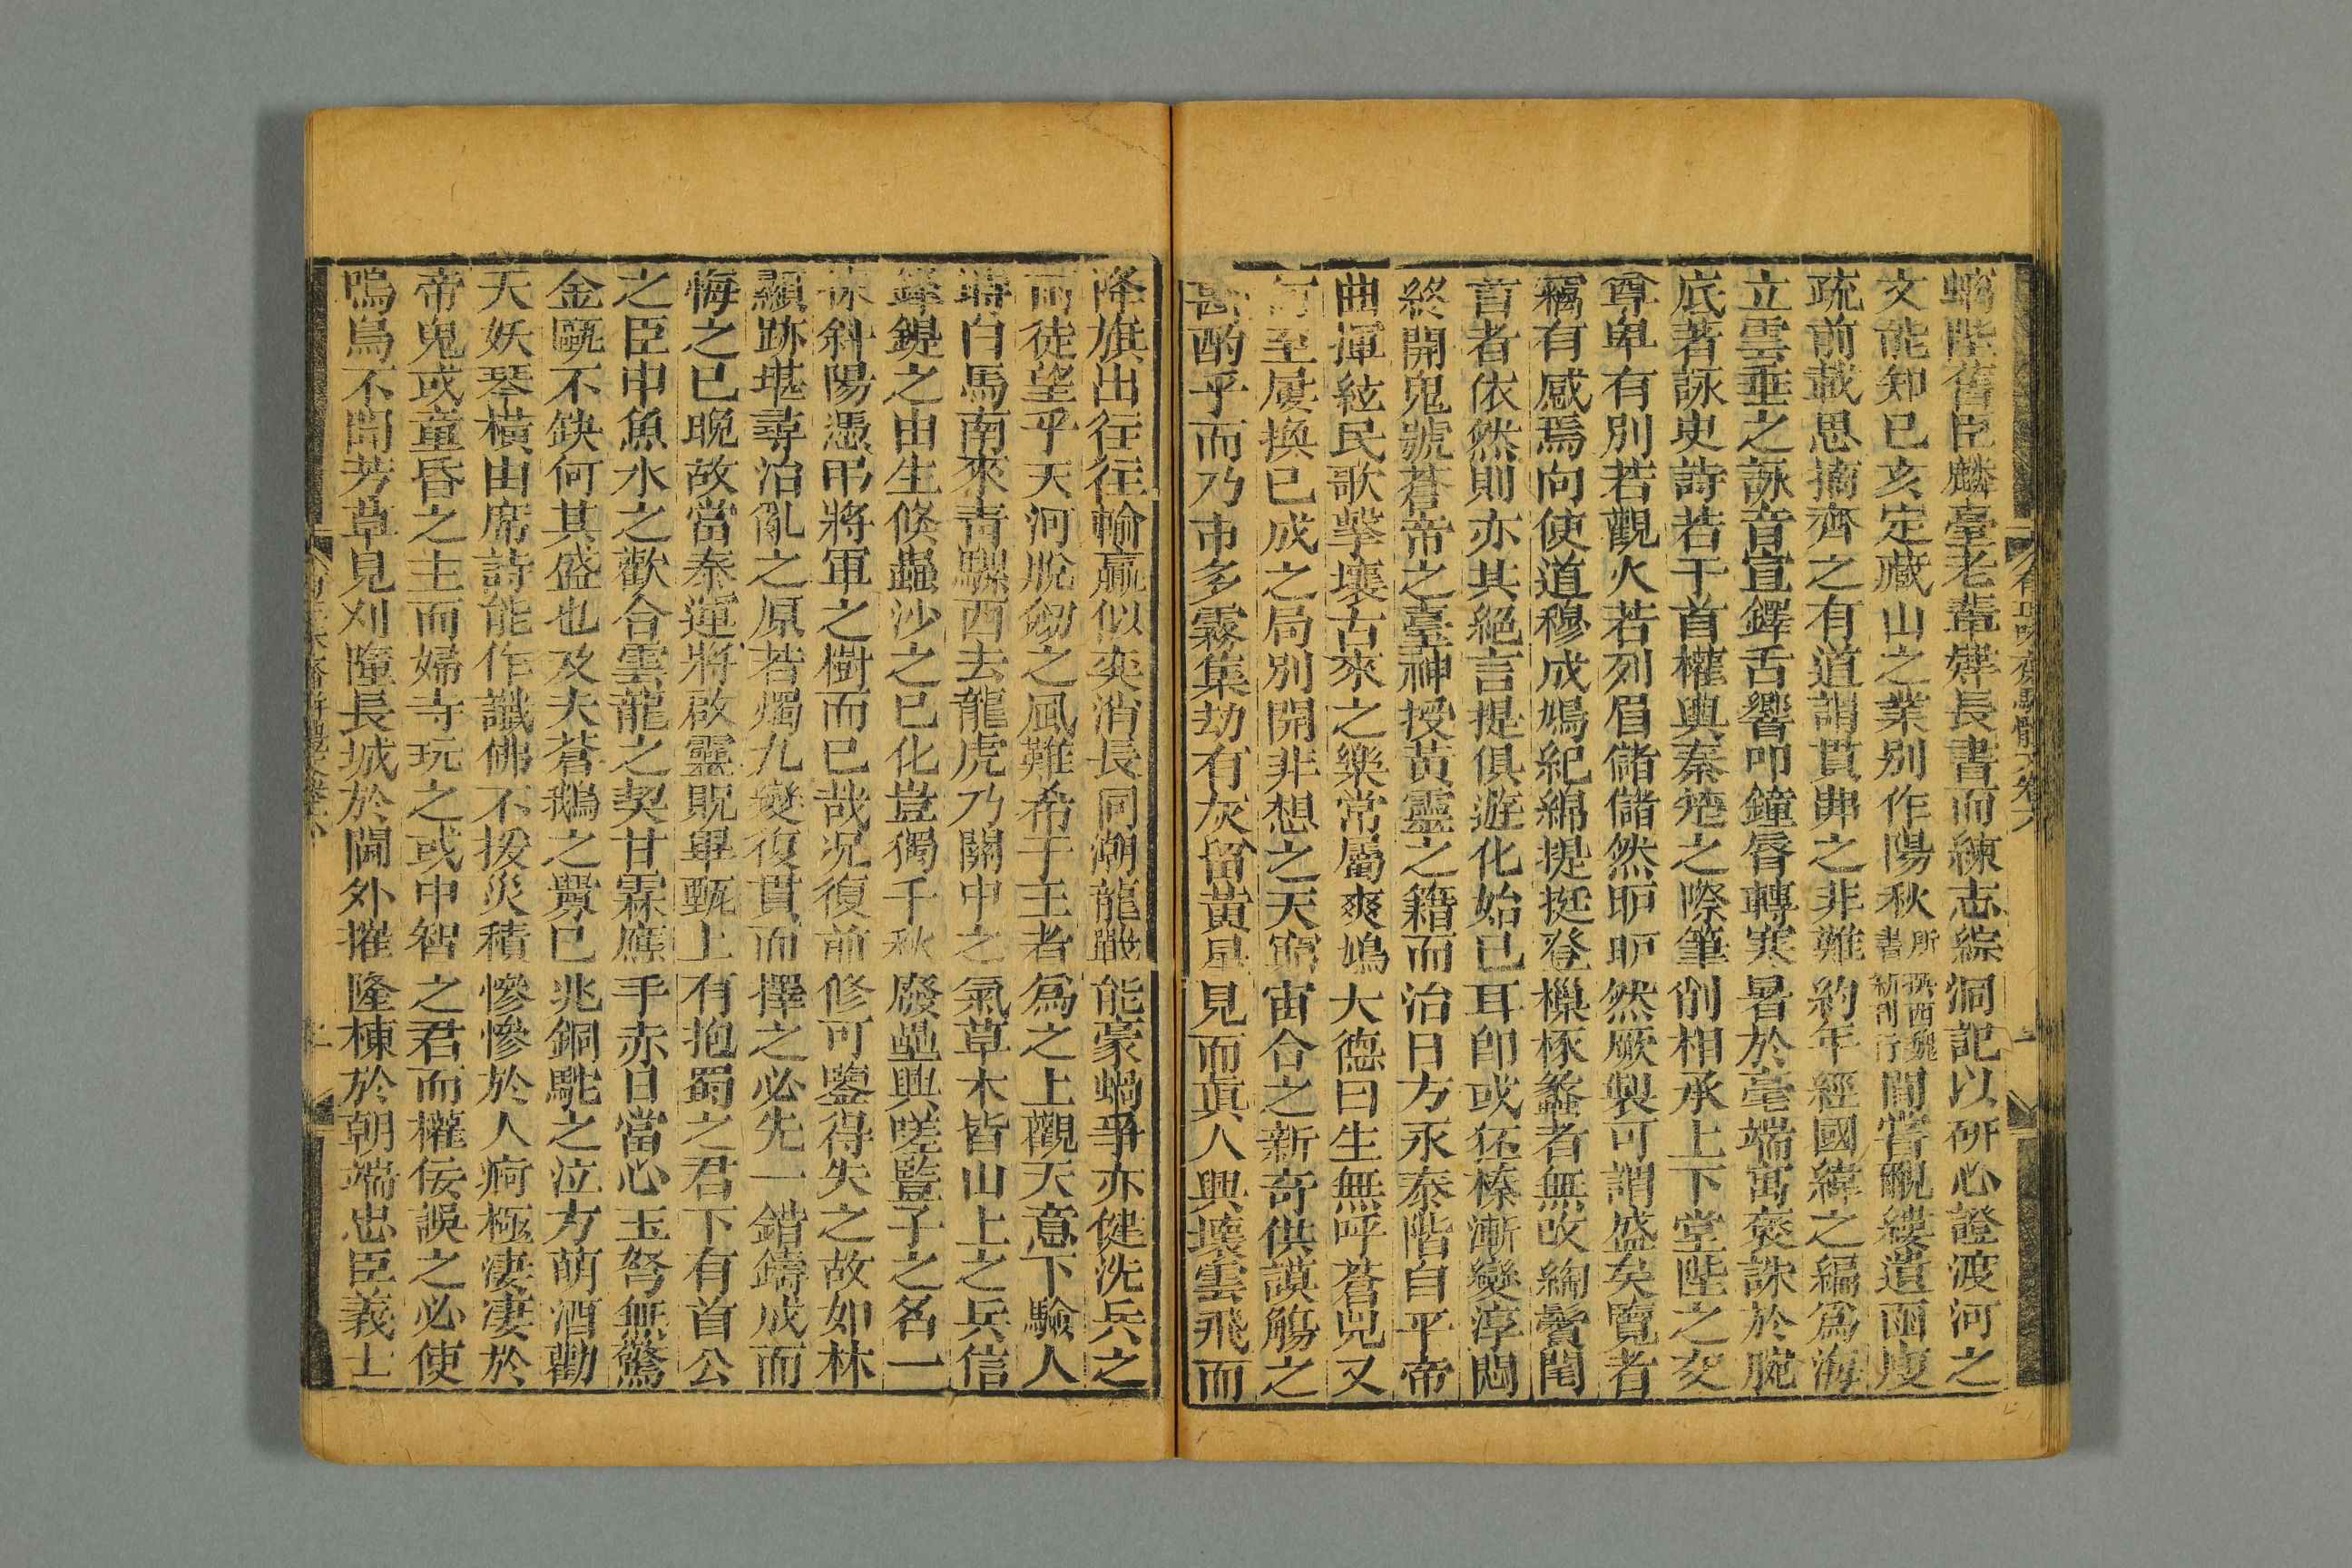 螭陛舊臣麟臺老輩肄長書而練志綜洞記以研心證渡河之
文能知己亥定藏山之業別作陽秋所撰西魏書新刊行間嘗覼縷遺函廋
疏前載思摘齊之有道謂貫弗之非難約年經國緯之編爲海
立雲垂之詠音宣鐸舌響叩鐘脣轉寒暑於毫端寓褒誅於腕
底著詠史詩若干首權輿秦楚之際筆削相承上下堂陛之交
尊卑有別若觀火若列眉儲儲然䀒䀒然厥製可謂盛矣覽者
竊有感焉向使道穆成鳩紀綿提挺登樔椓蠡者無改綯鬢闈
首者依然則亦共絕言提俱遊化始已耳卽或狉榛漸變淳悶
終開鬼號蒼帝之臺神授黃靈之籍而治日方永泰階自平帝
曲揮絃民歌擊壤古來之樂常屬爽鳩大德曰生無呼蒼兕又
至屢換已成之局別開非想之天竆宙合之新奇供謨觴之
斟酌乎而乃巿多霧集劫有灰留黃星見而眞人興壞雲飛而
降旗出往往輸贏似奕消長同潮龍戰能豪蝸爭亦健洗兵之
雨徒望乎天河脫劒之風難希于王者爲之上觀天意下驗人
時白馬南來靑騾西去龍虎乃關中之氣草木皆山上之兵信
鋒鍉之由生倏蟲沙之已化豈獨千秋廢壘興嗟豎子之名一
抹斜陽憑弔將軍之樹而已哉况復前修可鑒得失之故如林
顯跡堪尋治亂之原若燭九變復貫而擇之必先一錯鑄成而
悔之已晩故當泰運將啟靈貺畢甄上有抱蜀之君下有首公
之臣申魚水之歡合雲龍之契甘霖應手赤日當心玉弩無驚
金甌不缺何其盛也及夫蒼鵝之釁已兆銅駝之泣方萌酒勸
天妖琴橫由席詩能作讖佛不拔災積慘慘於人痾極淒淒於
帝鬼或童昏之主而婦寺玩之或中智之君而權佞誤之必使
嗚鳥不聞芳草見刈隳長城於閫外摧隆棟於朝端忠臣義士